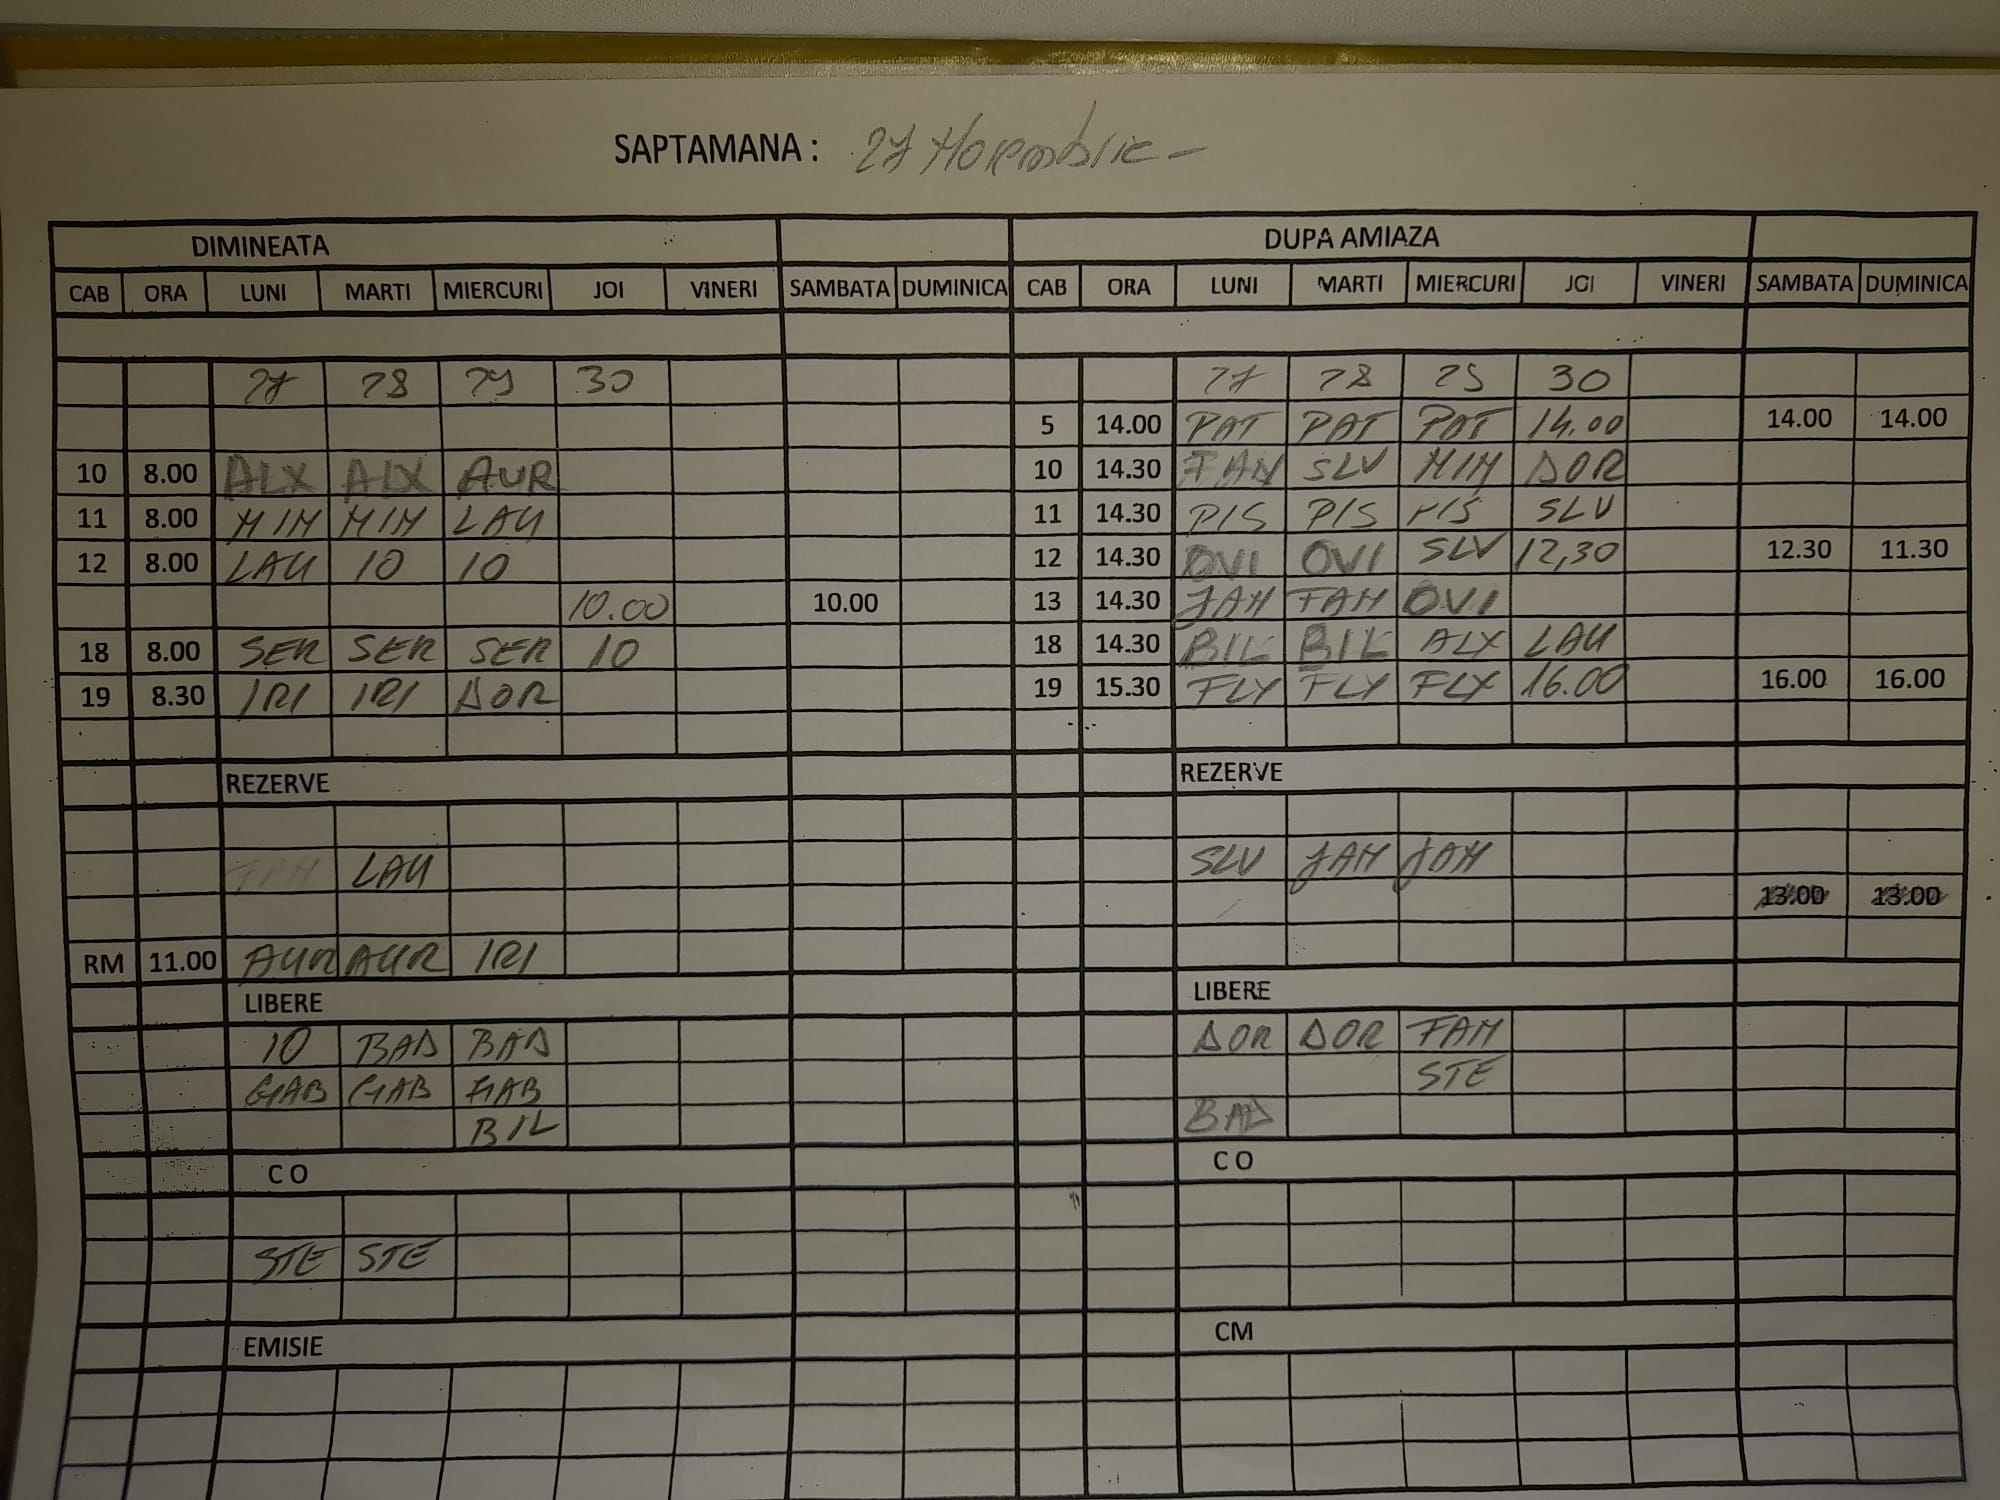 SAPTAMANA : 27 Noiembrie -
DIMINEATA DUPA AMIAZA
CAB ORA LUNI MARTI MIERCURI JOI VINERI SAMBATA DUMINICA CAB ORA LUNI MARTI MIERCURI JOI VINERI SAMBATA DUMINICA
27 28 29 30 27 28 29 30
5 14.00 PAT PAT PAT 14.00 14.00 14.00
10 8.00 ALX ALX AUR 10 14.30 FAN SLV MIM DOR
11 8.00 MIM MIM LAU 11 14.30 PIS PIS PIS SLV
12 8.00 LAU IO IO 12 14.30 OVI OVI SLV 12,30 12.30 11.30
10.00 10.00 13 14.30 JAM FAM OVI
18 8.00 SER SER SER IO 18 14.30 BIL BIL ALX LAU
19 8.30 IRI IRI DOR 19 15.30 FLY FLY FLY 16.00 16.00 16.00
REZERVE REZERVE
LAU SLV JAM JAM
13.00 13.00
RM 11.00 AUR AUR IRI
LIBERE LIBERE
IO BAD BAD DOR DOR FAM
GAB GAB GAB STE
BIL BAD
C O C O
STE STE
EMISIE CM